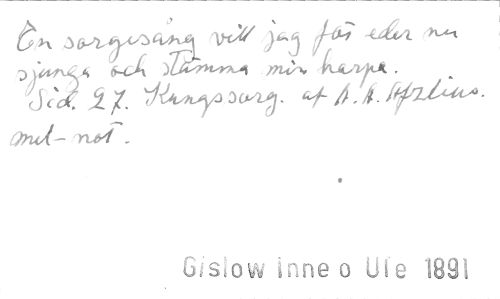 En sorgesång vill jag för eder nu
sjunga och stämma min harpa.
Sid. 27. Kungssorg. af A. A. Afzelius.
mel-not.
Gislow Inne o Ute 1891